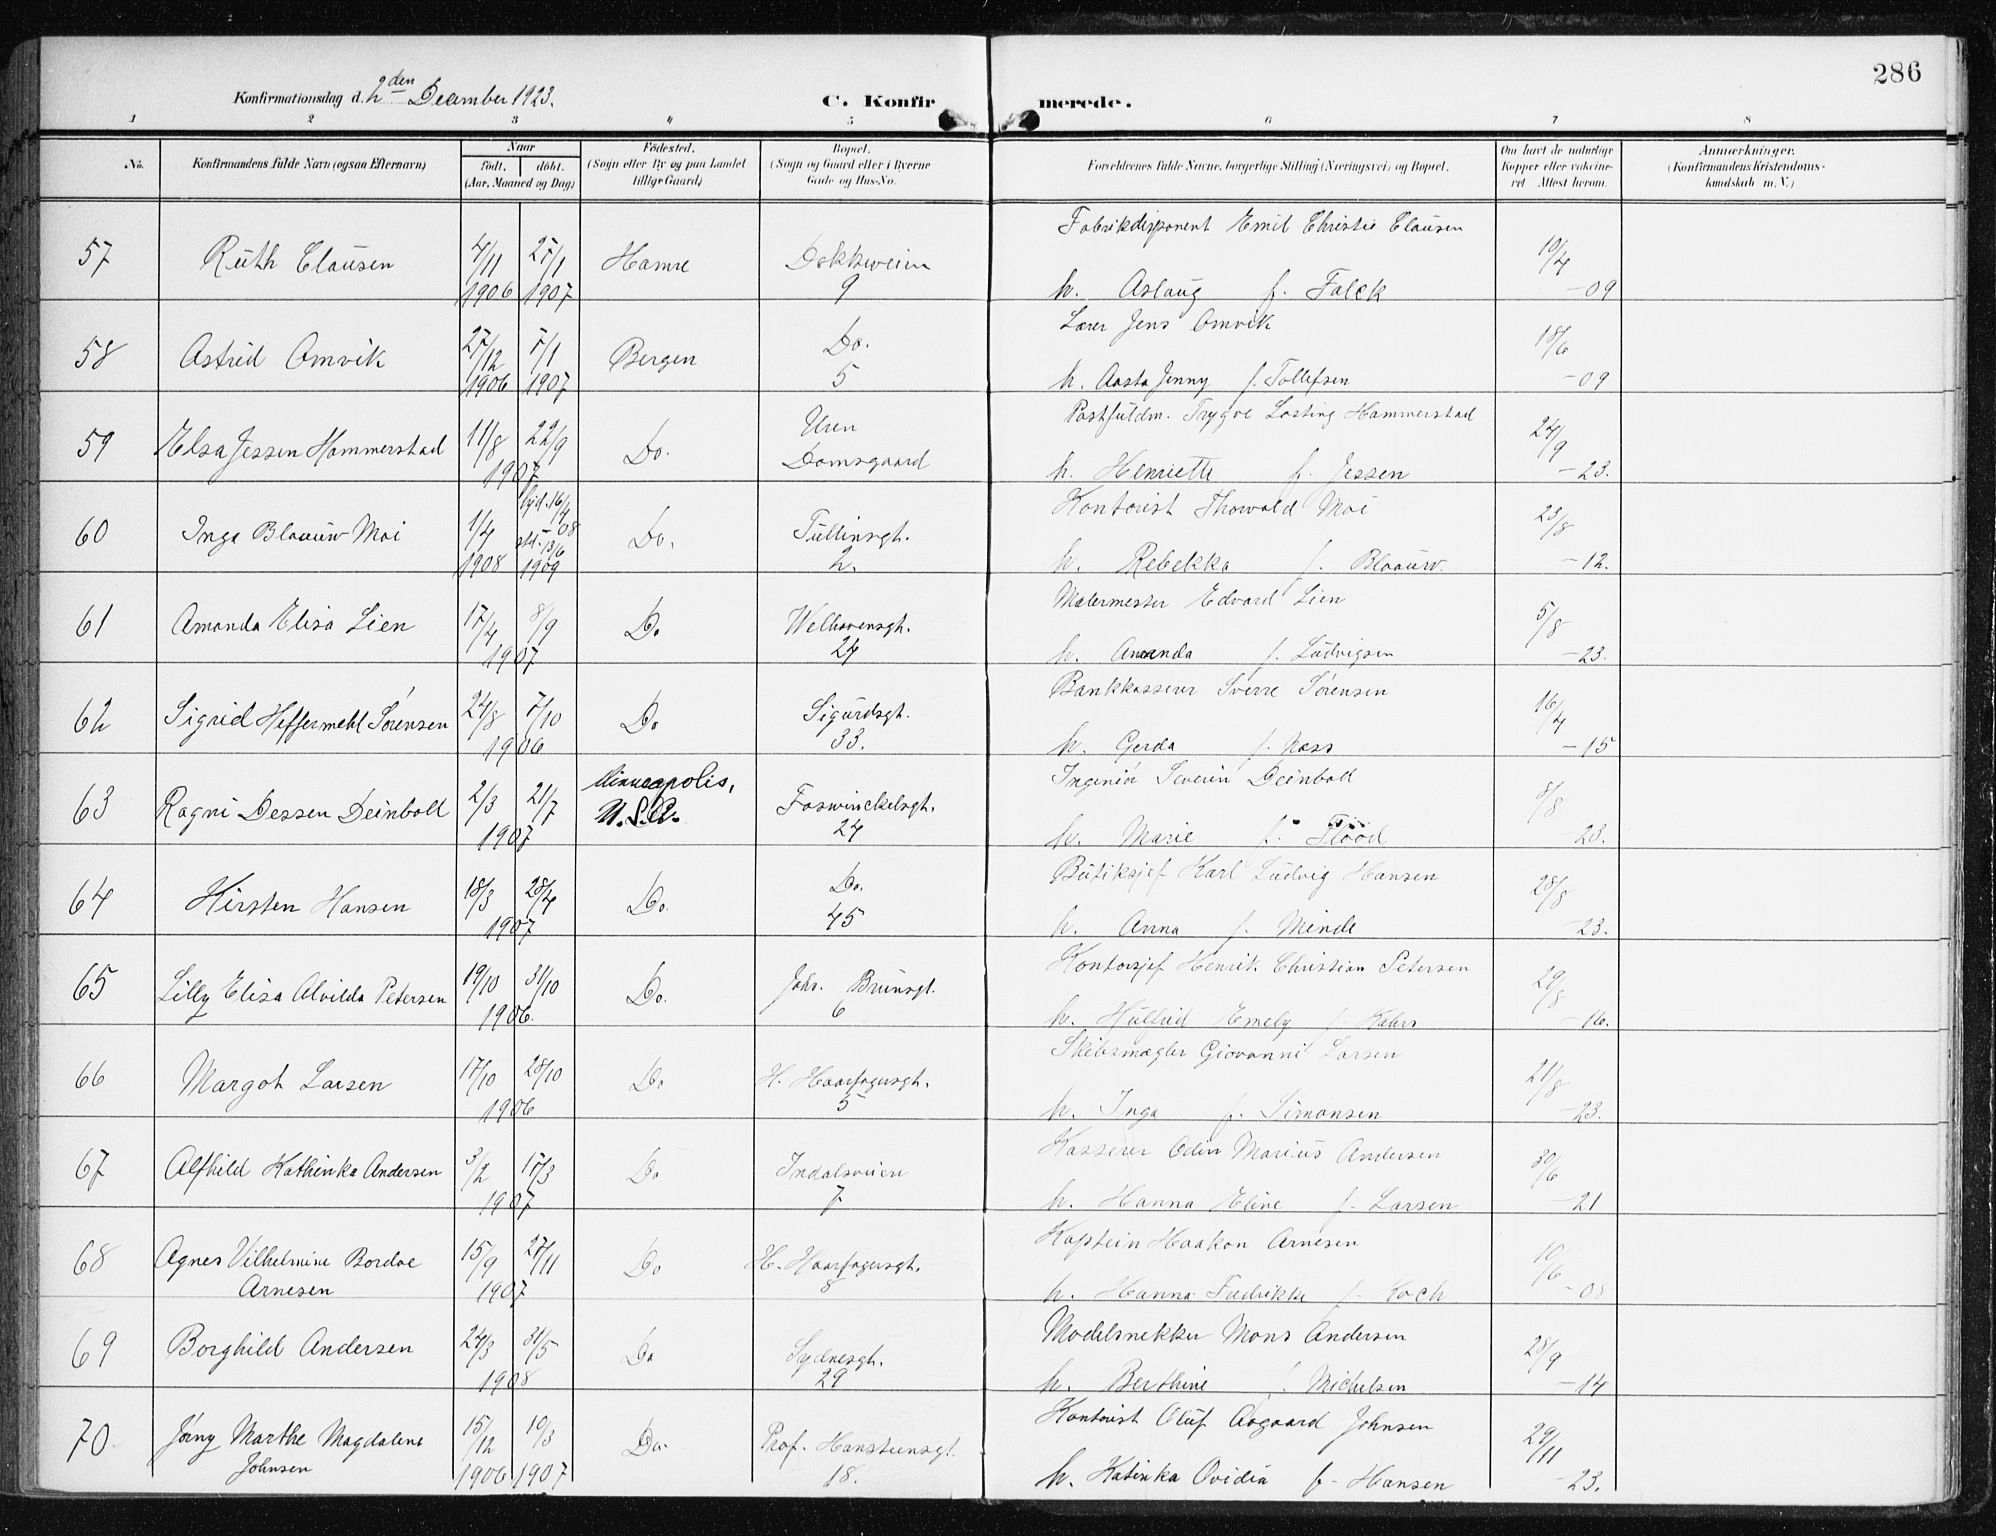 286
Konfirmationsdag d. 2den December 1923.
C. Konfirmerede.
1 2 3 4 5 6 7 8
No. Konfirmandens fulde Navn (ogsaa Efternavn) Naar født. døbt. (Aar, Maaned og Dag) Fødested. (Sogn eller By og paa Landet tillige Gaard) Bopæl. (Sogn og Gaard eller i Byerne Gade og Hus-No. Forældrenes fulde Navne, borgerlige Stilling (Næringsvei) og Bopæl. Om havt de naturlige Kopper eller vakcineret Attest herom. Anmærkninger. (Konfirmandens Kristendomskundskab m. V.)
Fabrikdisponent Emil Christie Clausen
57 Ruth Clausen 4/11 1906 27/1 1907 Hamre Dokkeveien 9 10/4 -09
h. Aslaug f. Falck
Lærer Jens Omvik
58 Astrid Omvik 27/12 1906 7/1 1907 Bergen Do. 5 18/6 -09
h. Aasta Jenny f. Tollefsen
Postfuldm. Trygve Lasting Hammerstad
59 Elsa Jessen Hammerstad 11/8 22/9 1907 Do. Uren Domsgaard 24/9 -23.
h. Henriette f. Jessen
Kontorist Thorvald Moi
60 Inga Blaauw Moi 1/4 1908 hjd. 16/4 -08 std. 13/6 1909 Do. Tullinsgt. 2. 23/8 -12.
h. Rebekka f. Blaauw.
Malermester Edvard Lien
61 Amanda Elisa Lien 17/4 8/9 1907 Do Welhavensgt. 24 5/8 -23.
h. Amanda f. Ludvigsen
Bankkasserer Sverre Sørensen
62 Sigrid Heffermehl Sørensen 24/8 7/10 1906 Do Sigurdsgt. 33. 16/4 -15
h. Gerda f. Næss
Ingeniør Severin Deinboll
63 Ragni Dessen Deinboll 2/3 21/7 1907 Minneapolis, U.S.A. Foswinckelsgt. 24 8/8 23.
h. Marie f. Flood
Butiksjef Karl Ludvig Hansen
64 Kirsten Hansen 18/3 28/4 1907 Do. Do. 45 28/8 -23.
h. Anna f. Minde
Kontorsjef Henrik Christian Petersen
65 Lilly Elisa Alvilda Petersen 19/10 31/10 1906. Do. Joh. Brunsgt. 6 29/8 -16.
h. Hulfrid Emely f. Kahrs
Skibsmægler Giovanni Larsen
66 Margot Larsen 17/10 28/10 1906 Do H. Haarfagersgt. 5 21/8 -23.
h. Inga f. Simonsen
Kasserer Odin Marius Andersen
67 Alfhild Kathinka Andersen 3/2 17/3 1907 Do Indalsveien 7 30/6 -21
h. Hanna Eline f. Larsen
Kaptein Haakon Arnesen
68 Agnes Vilhelmine Bordoe Arnesen 15/9 27/11 1907 Do H. Haarfagersgt. 8 10/6 -08
h. Hanna Fredrikke f. Koch
Modelsnekker Mons Andersen
69 Borghild Andersen 24/3 31/5 1908 Do Sydnesgt. 29 28/9 -14
h. Berthine f. Michelsen
Kontorist Oluf Aagaard Johnsen
70 Jenny Marthe Magdalene Johnsen 15/12 1906 10/3 1907 Do. Prof. Hansteensgt. 18. 29/11 -23.
h. Katinka Ovidia f. Hansen